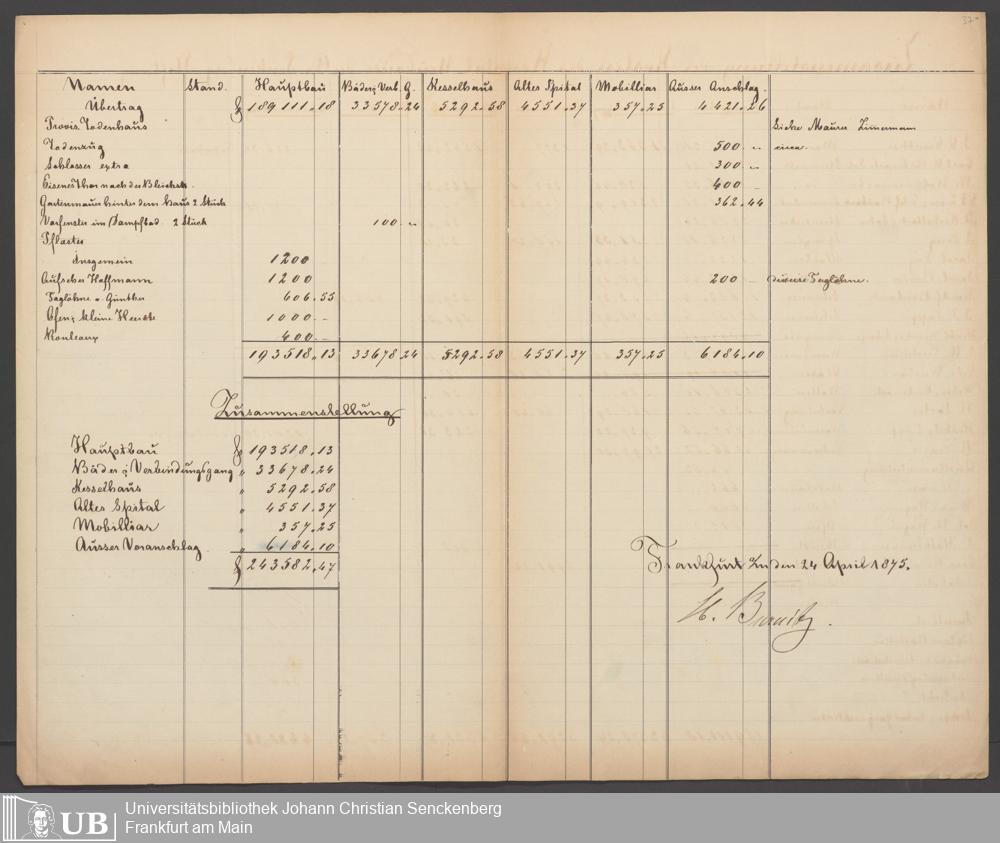 37
Namen Stand. Hauptbau Bäder & Verb. G. Kesselhaus Altes Spital Mobilliar Ausser Anschlag.
Übertrag f 189111.18 33578.24 5292.58 4551.37 357.25 4421.26
Provis. Todenhaus Siehe Maurer Zimermann
Todenzug 500 .. circa.
Schlosser extra 300 ..
Eisenes Thor nach der Bleichstr. 400 –
Gartenmauer hinter dem Haus 2 Stück 362.44
Vorfenster im Dampfbad. 2 Stück 100. ..
Pflaster
Insgemein 1200
Aufseher Hoffmann 1200 200 – diverse Taglöhne.
Taglöhne v. Günther 606.55
Ofen & kleine Heerde 1000.–
Rouleaux 400.–
193518.13 33678.24 5292.58 4551.37 357.25 6184.10
Zusammenstellung
Hauptbau f 193518.13
Bäder & Verbindungsgang " 33678.24
Kesselhaus " 5292.58
Altes Spital " 4551.37
Mobilliar " 357.25
Ausser Voranschlag " 6184.10
f 243582.47
Frankfurt a/m den 24 April 1875.
H. Burnitz.
UB
Universitätsbibliothek Johann Christian Senckenberg
Frankfurt am Main